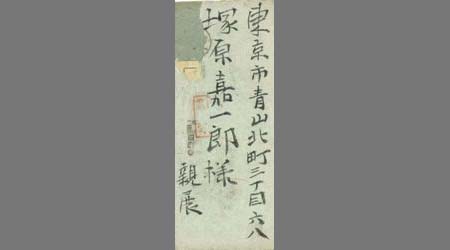 東京市青山北町三丁目六八
塚原嘉一郎様
親展